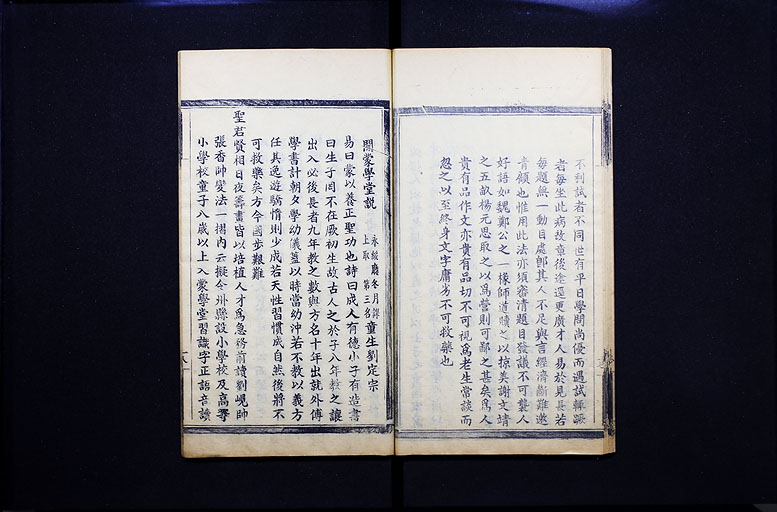 不利試者不同世有平日學問尚優而遇試輒蹶
者每坐此病故章後逵還更廣才人易於見長若
每題無一動目處即其人不足與言經濟斷難邀
青顧也惟用此法亦須審清題目發議不可襲人
好語如魏鄭公之一椽師道贖之以掠美謝文靖
之五畝楊元思取之以為營則可鄙之甚矣為人
貴有品作文亦貴有品切不可視為老生常談而
忽之以至終身文字庸劣不可救藥也
開蒙學堂説
永綏廳冬月課
上取第三名
童生劉定宗
易曰蒙以養正聖功也詩曰成人有德小子有造書
曰生子罔不在厥初生故古人之於子八年教之讓
出入必後長者九年教之數與方名十年出就外傅
學書計朝夕學幼儀蓋以時當幼沖若不教以義方
任其逸遊驕惰則少成若天性習慣成自然後將不
可救藥矣方今國步艱難
聖君賢相日夜籌畫皆以培植人才為急務前讀劉峴帥
張香帥變法一摺內云擬令州縣設小學校及高等
小學校童子八歲以上入蒙學堂習識字正語音讀